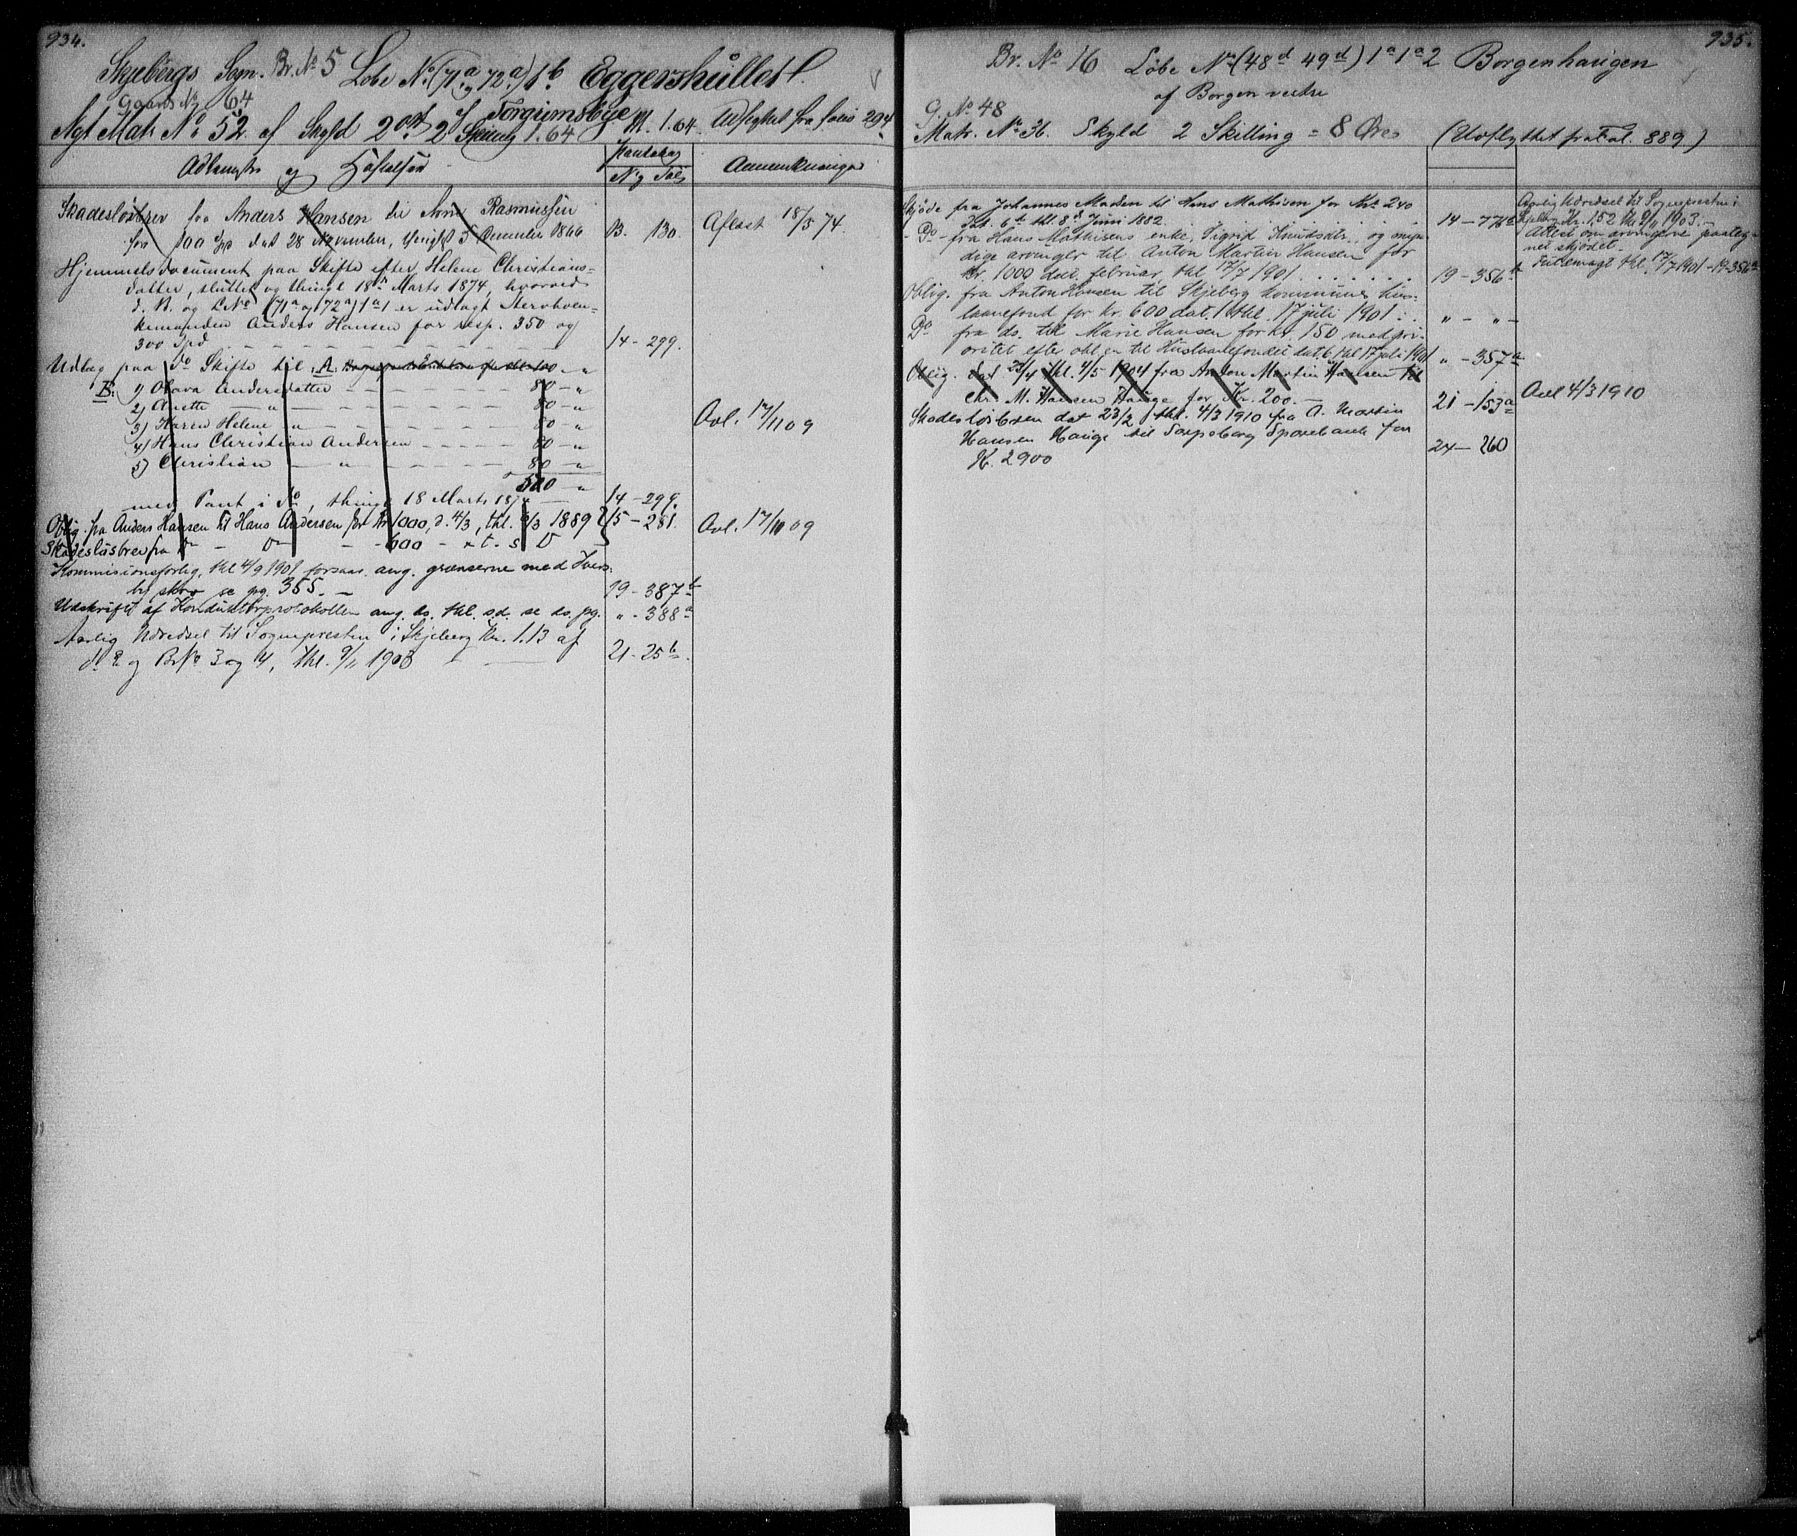 934.
Skjebergs Sogn. Br. No 5 Löbe No (71a og 72a) 1b Eggershullet
Gaards No 64 Torgrimsbye
Nyt Matr No 52 af Skyld 2 Skilling 1.64 M. 1.64. Udflyttet fra folio 294
Adkomster og Hæftelser
Pantebog
No og Side
Anmerkninger
Skadesløsbrev fra Anders Hansen til Arne Rasmussen
for 100 Spd dat 28 November, thinglt 5 December 1866 B. 130. Aflöst 18/5 74.
Hjemmelsdocument paa Skifte efter Helene Christians-
datter, sluttet og thinglt 18de Marts 1874, hvorved
d. B. og L No (71a og 72a) 1a1 er udlagt Stervboen-
kemanden Anders Hansen for resp. 350 og
300 Spd 14 - 299.
Udlæg paa do Skifte til A. 100 - "
B. 1) Olava Andersdatter - - - 80 - "
2) Anette - " - - - - - 80 - "
3) Karen Helene " - - - - 80 - "
4) Hans Christian Andersen - - - - 80 - " Avl. 17/11 09
5) Christian - " - - - - 80 - "
500 - "
med Pant i do, thinglt 18 Marts 1874 14 - 299.
Oblig. fra Anders Hansen til Hans Andersen for Kr 1000, d. 4/3, thl. 6/3 1889 15 - 281. Avl. 17/11 09
Skadeslösbrev fra Do - Do - - 600 - s. t. s. D
Kommisionsforlig, thl 4/9 1901 forsaav. ang. grænserne med Ivers-
by skov se pg. 355. - 19 - 387b
Udskrift af Konduktörprotokollen ang. ds. thl. s.d. se ds. pg. " - 388a
Aarlig Udredsel til Sognepresten i Skjeberg Kr. 1.13 af
d. B. og BrNo 3 og 4, thl. 9/1 1903 21 - 25b.
935.
Br. No 16 Löbe No (48d 49d) 1a 1a 2 Borgenhaugen
af Borgen vestre
G. No 48
Matr. No 36. Skyld 2 Skilling = 8 Øre (Udflyttet fra Fol. 889)
Skjöde fra Johannes Maden til Hans Mathisen for Kr 240
dat. 6te thl. 8de Juni 1882 14 - 77b
Do - fra Hans Mathisens enke, Sigrid Knudsdtr. og myn-
dige arvinger til Anton Martin Hansen for
Kr. 1000 dat. februar thl 17/7 1901 . . . . . 19 - 356b
Oblig. fra Anton Hansen til Skjeberg kommunes hus-
laanefond for kr. 600 dat. 1 thl. 17 juli 1901 . . " - " -
Do fra ds. til Marie Hansen for kr. 150 med pri-
oritet efter obl.en til Huslaanefondet dat. 6 thl 17 juli 1901 " - 357a
Oblig. dat 23/4 thl. 2/5 1904 fra Anton Martin Hansen til
Chr. M. Hansen Hauge for Kr. 200. - 21 - 153a Avl 4/3 1910
Skadesløsbrev dat 23/2 thl. 4/3 1910 fra A. Martin
Hansen Hauge til Sarpsborg Sparebank for
K. 2900 24 - 260
Aarlig Udredsel til Sognepresten i
Skjeberg Kr. 1.52 thl 9/1 1903. -
Attest om arvingerne paateg-
net skjödet.
Fuldmagt thl. 17/7 1901 - 19-356a